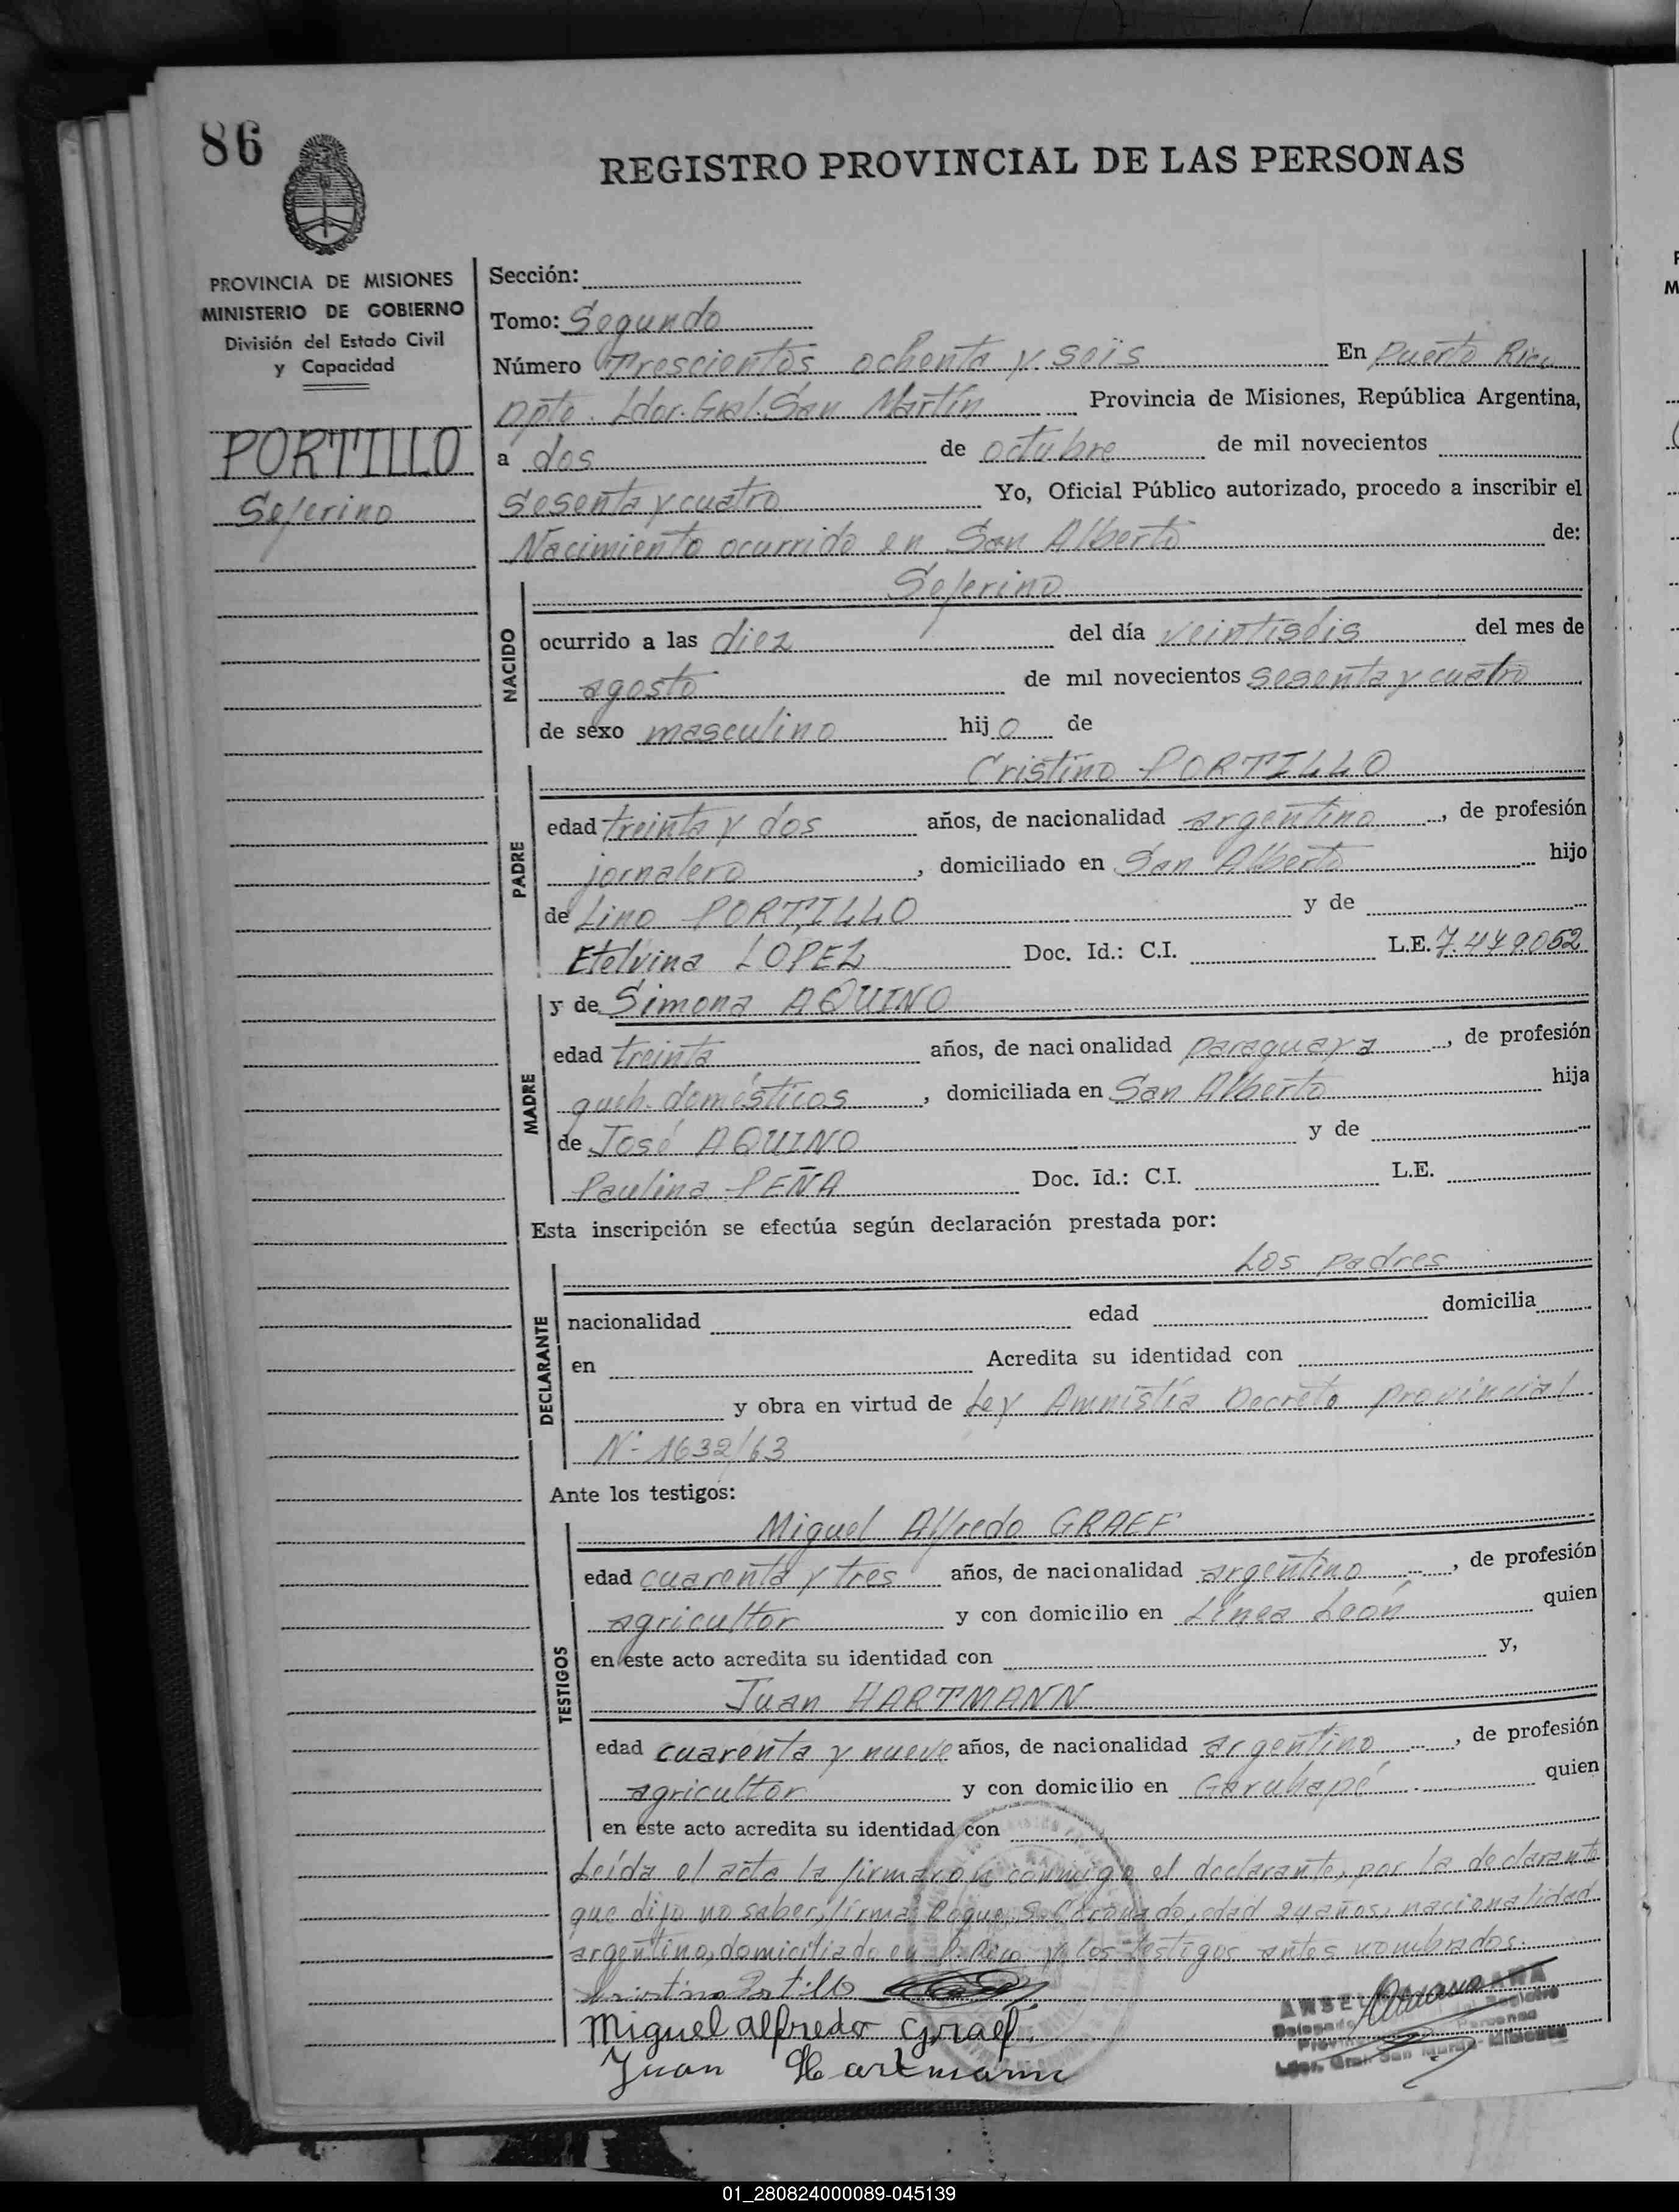 86
REGISTRO PROVINCIAL DE LAS PERSONAS
PROVINCIA DE MISIONES
MINISTERIO DE GOBIERNO
División del Estado Civil
y Capacidad
PORTILLO
Seferino
Sección:
Tomo: Segundo
Número Trescientos ochenta y seis En Puerto Rico
Dpto. Ldor. Gral. San Martín Provincia de Misiones, República Argentina,
a dos de octubre de mil novecientos
sesenta y cuatro Yo, Oficial Público autorizado, procedo a inscribir el
Nacimiento ocurrido en San Alberto de:
NACIDO
Seferino
ocurrido a las diez del día veintiséis del mes de
agosto de mil novecientos sesenta y cuatro
de sexo masculino hijo de
PADRE
Cristino PORTILLO
edad treinta y dos años, de nacionalidad argentino, de profesión
jornalero, domiciliado en San Alberto hijo
de Lino PORTILLO y de
Etelvina LOPEZ Doc. Id.: C.I. L.E. 7.479.052
MADRE
y de Simona AQUINO
edad treinta años, de nacionalidad paraguaya, de profesión
queh. domésticos, domiciliada en San Alberto hija
de José AQUINO y de
Paulina PEÑA Doc. Id.: C.I. L.E.
Esta inscripción se efectúa según declaración prestada por:
DECLARANTE
Los padres
nacionalidad edad domicilia
en Acredita su identidad con
y obra en virtud de Ley Amnistía Decreto Provincial
Nº 1632/63
Ante los testigos:
TESTIGOS
Miguel Alfredo GRAEF
edad cuarenta y tres años, de nacionalidad argentino, de profesión
agricultor y con domicilio en Línea León quien
en este acto acredita su identidad con y,
Juan HARTMANN
edad cuarenta y nueve años, de nacionalidad argentino, de profesión
agricultor y con domicilio en Garuhapé quien
en este acto acredita su identidad con
Leída el acta la firmaron conmigo el declarante, por la declarante
que dijo no saber, firma: Roque S. Coronado, edad 24 años, nacionalidad
argentino, domiciliado en P. Rico y los testigos antes nombrados.
Cristino Portillo
Miguel alfredo Graef.
Juan Hartmann
Ldor. Gral. San Martín - Misiones
01_280824000089-045139